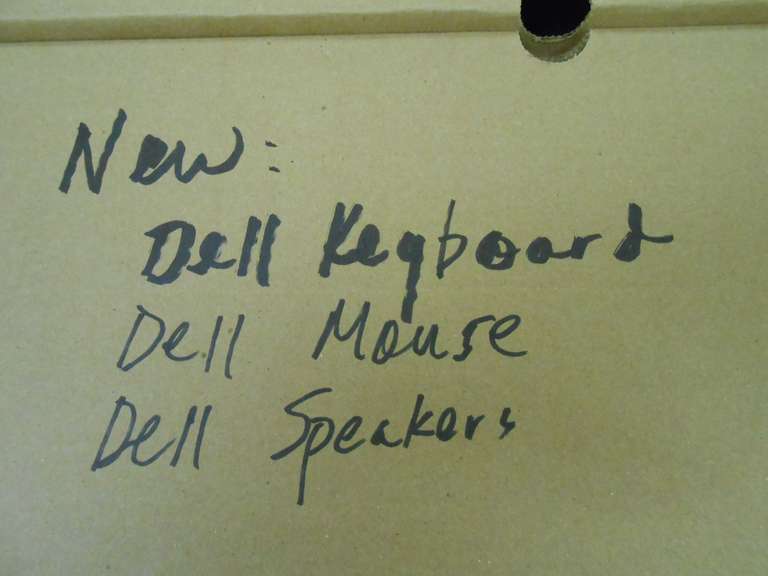 New:
Dell Keyboard
Dell Mouse
Dell Speakers